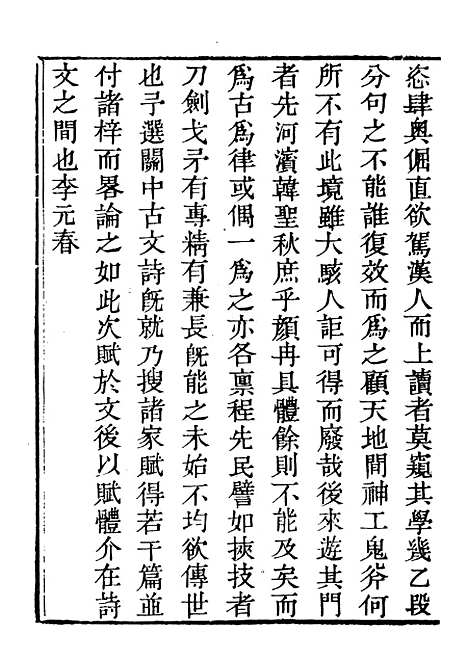 恣肆奧倔直欲駕漢人而上讀者莫窺其學幾乙段
分句之不能誰復效而爲之顧天地間神工鬼斧何
所不有此境雖大駭人詎可得而廢哉後來遊其門
者先河濱韓聖秋庶乎顏冉具體餘則不能及矣而
爲古爲律或偶一爲之亦各稟程先民譬如挾技者
刀劍戈矛有專精有兼長旣能之未始不均欲傳世
也予選關中古文詩旣就乃搜諸家賦得若干篇並
付諸梓而畧論之如此次賦於文後以賦體介在詩
文之間也李元春